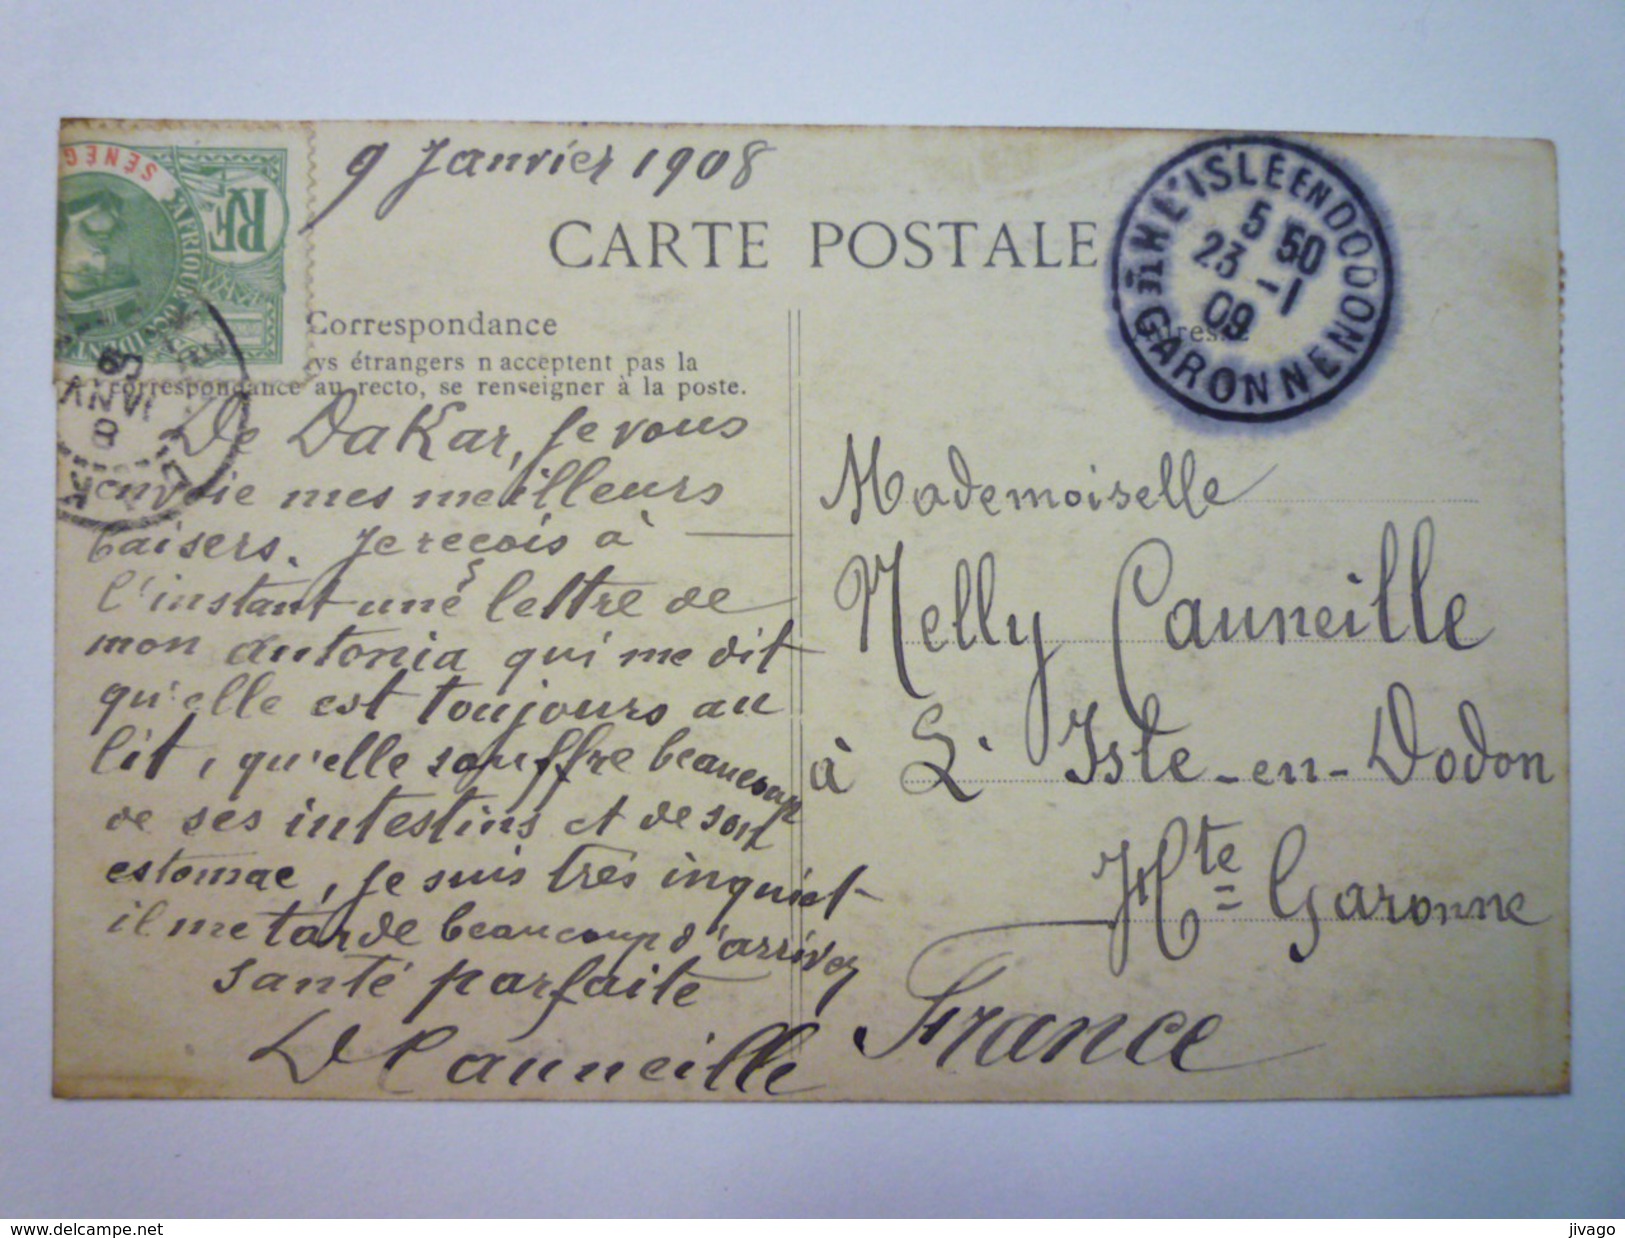 SÉNÉG
RF
9 Janvier 1908
CARTE POSTALE
L'ISLE EN DODON
5 50
23 -1
09
HTE GARONNE
Correspondance
Adresse
ys étrangers n acceptent pas la
correspondance au recto, se renseigner à la poste.
De Dakar, je vous
envoie mes meilleurs
baisers. Je reçois à
l'instant une lettre de
mon antonia qui me dit
qu'elle est toujours au
lit, qu'elle souffre beaucoup
de ses intestins et de son
estomac, je suis très inquiet
il me tarde beaucoup d'arriver
santé parfaite
Cauneille
Mademoiselle
Nelly Cauneille
à L'Isle-en-Dodon
Hte Garonne
France
www.delcampe.net
jivago